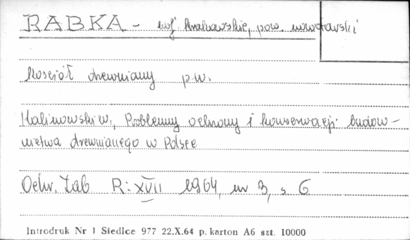 RABKA - woj. krakowskie, pow. nowotarski
kościół drewniany p.w.
Kalinowski W., Problemy ochrony i konserwacji budow-
nictwa drewnianego w Polsce
Ochr. Zab R: XVII 1964, nr 3, s 6
Introdruk Nr 1 Siedlce 977 22.X.64 p. karton A6 szt. 10000